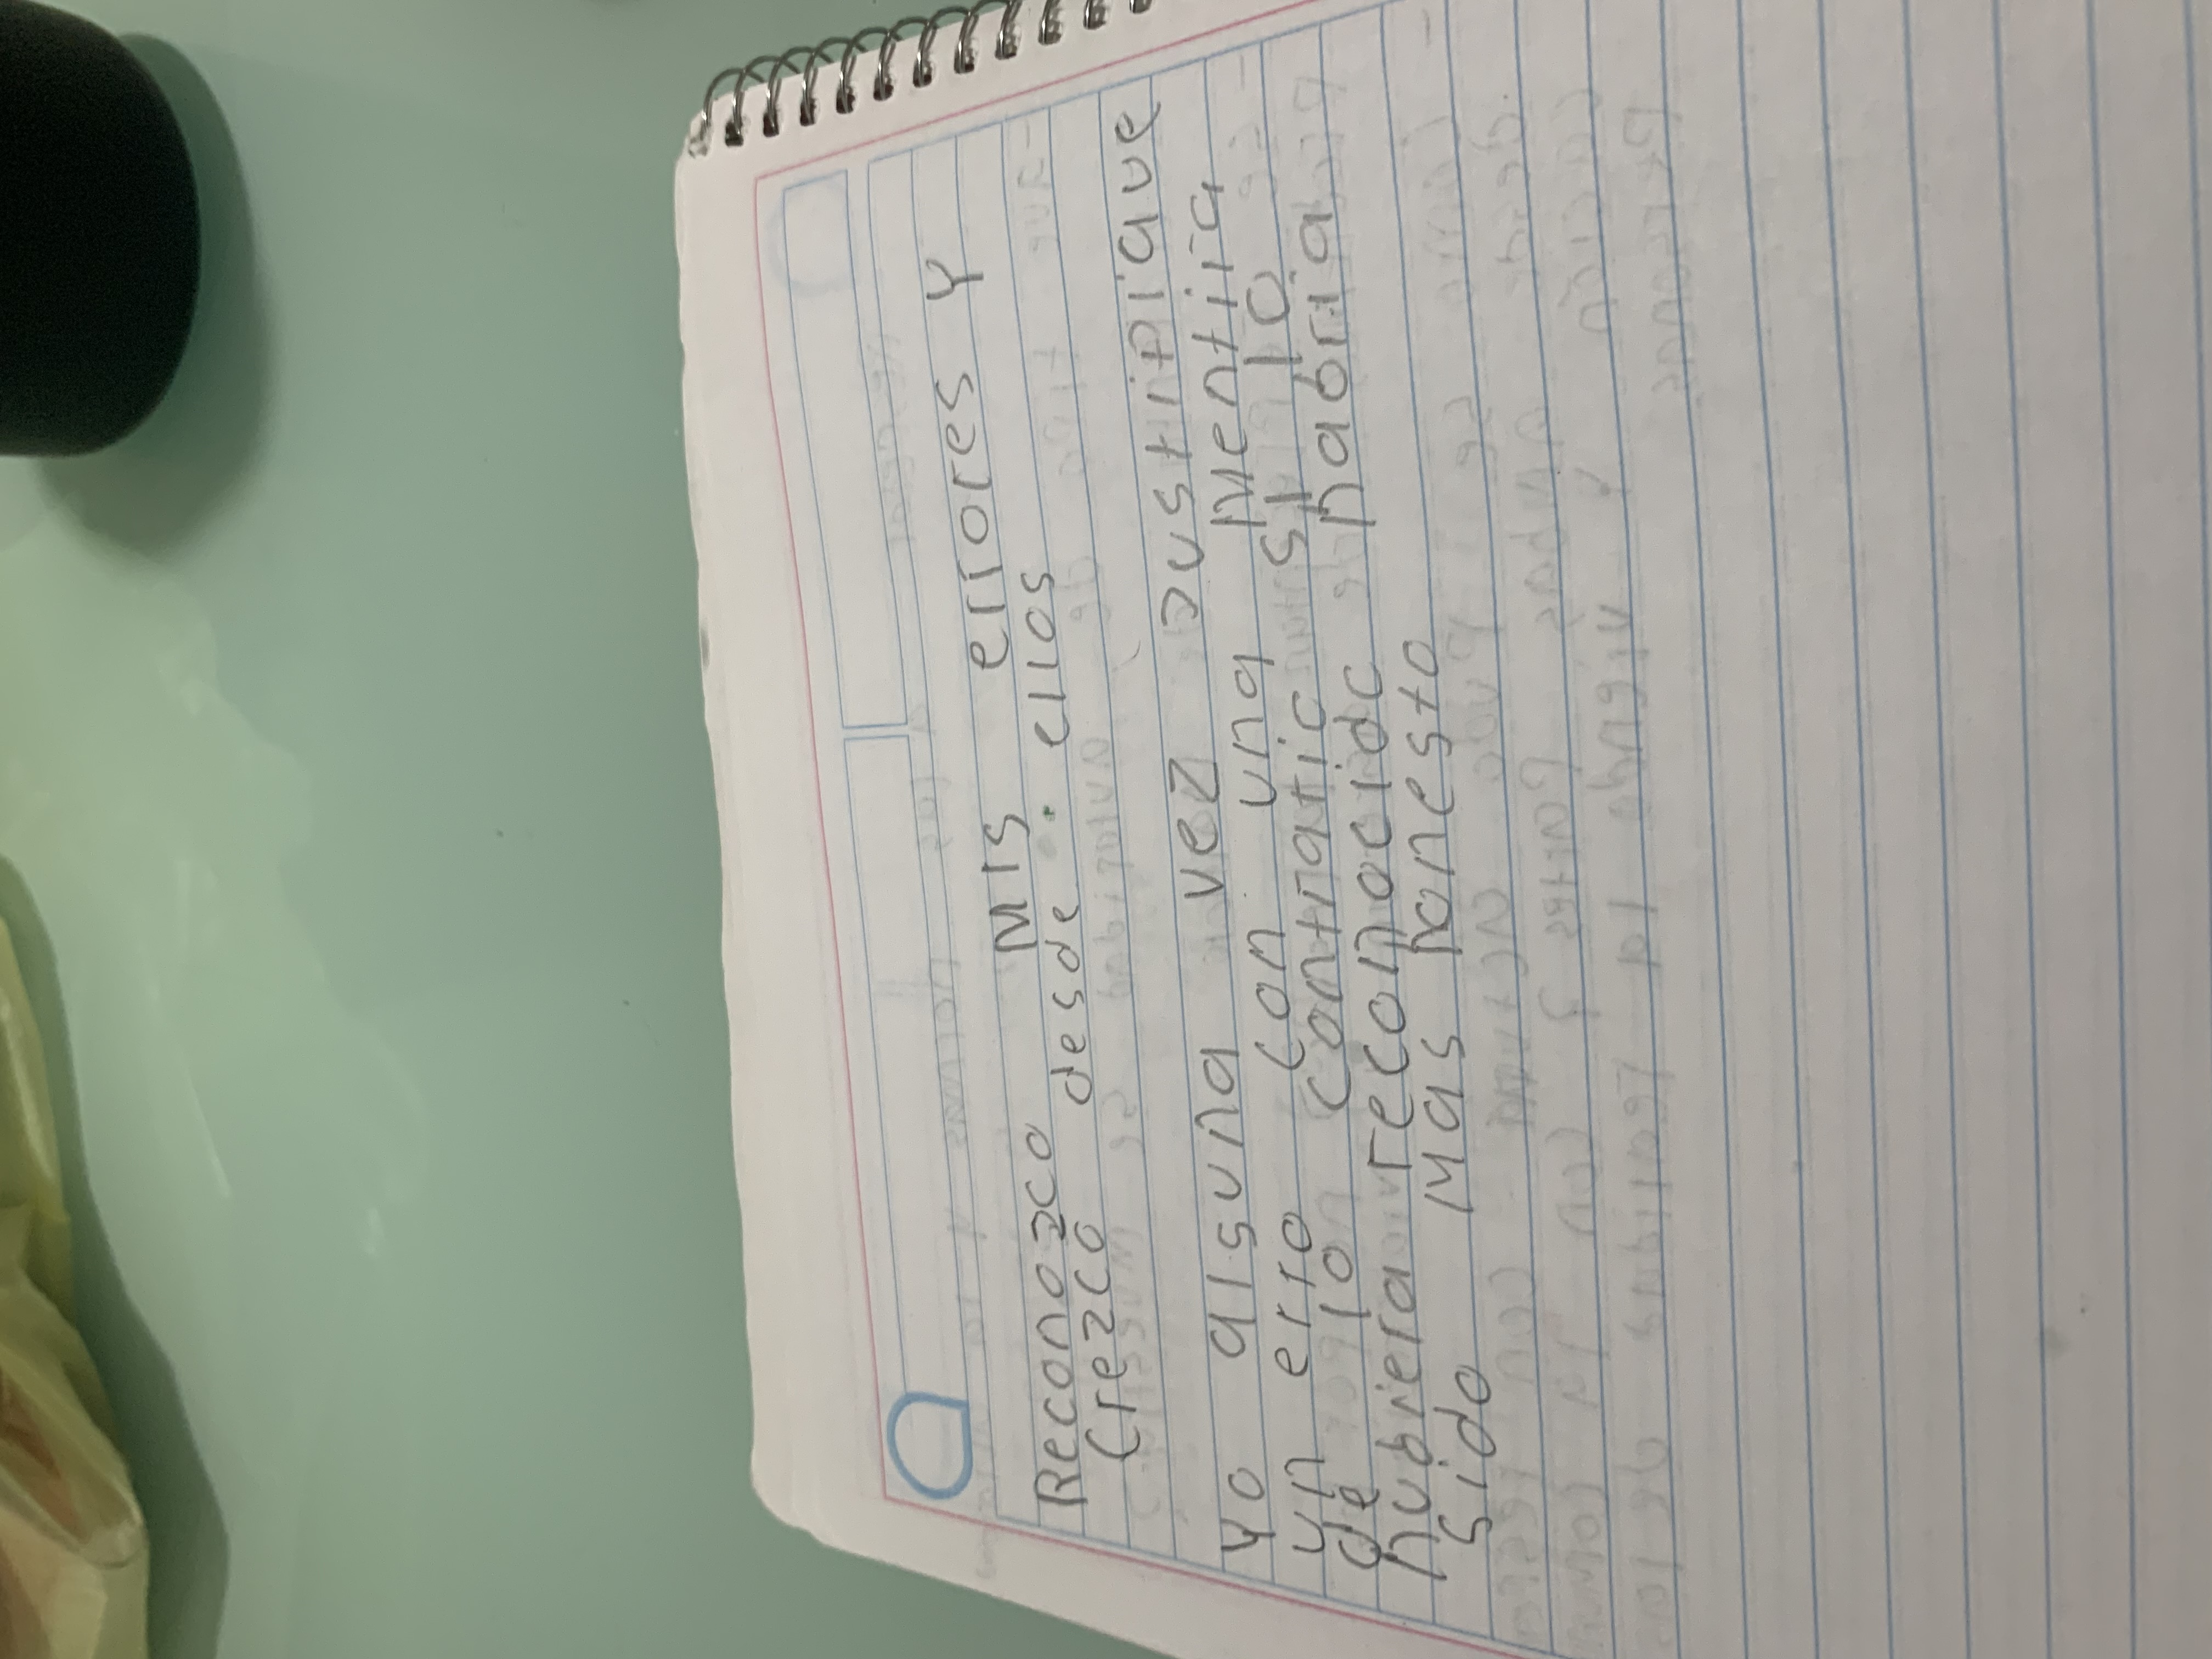 Reconozco mis errores y
crezco desde ellos
Yo alguna vez justifique
un erro con una mentira
de lo contratic si lo
hubiera reconocido habria
sido mas honesto